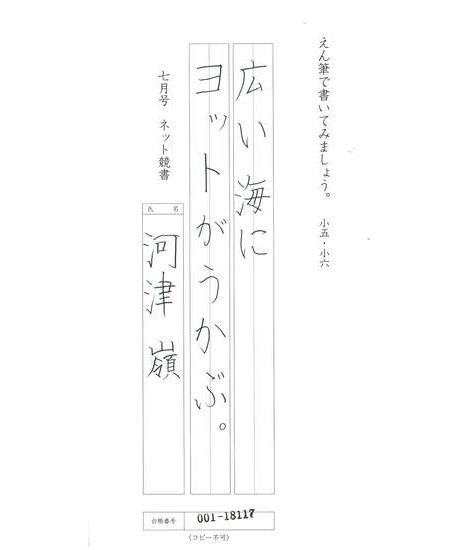 えん筆で書いてみましょう。 小五・小六
広い海に
ヨットがうかぶ。
七月号 ネット競書
氏 名
河津 嶺
合格番号 001-18117
(コピー不可)